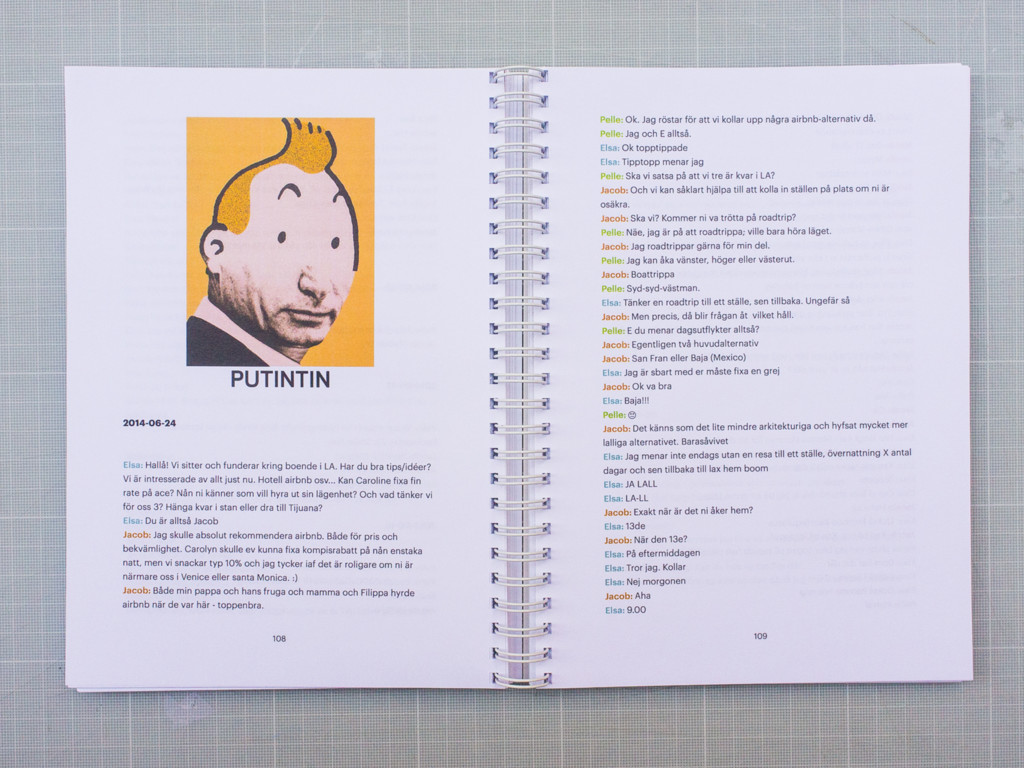 PUTINTIN
2014-06-24
Elsa: Hallå! Vi sitter och funderar kring boende i LA. Har du bra tips/idéer?
Vi är intresserade av allt just nu. Hotell airbnb osv... Kan Caroline fixa fin
rate på ace? Nån ni känner som vill hyra ut sin lägenhet? Och vad tänker vi
för oss 3? Hänga kvar i stan eller dra till Tijuana?
Elsa: Du är alltså Jacob
Jacob: Jag skulle absolut rekommendera airbnb. Både för pris och
bekvämlighet. Carolyn skulle ev kunna fixa kompisrabatt på nån enstaka
natt, men vi snackar typ 10% och jag tycker iaf det är roligare om ni är
närmare oss i Venice eller santa Monica. :)
Jacob: Både min pappa och hans fruga och mamma och Filippa hyrde
airbnb när de var här - toppenbra.
108
Pelle: Ok. Jag röstar för att vi kollar upp några airbnb-alternativ då.
Pelle: Jag och E alltså.
Elsa: Ok topptippade
Elsa: Tipptopp menar jag
Pelle: Ska vi satsa på att vi tre är kvar i LA?
Jacob: Och vi kan såklart hjälpa till att kolla in ställen på plats om ni är
osäkra.
Jacob: Ska vi? Kommer ni va trötta på roadtrip?
Pelle: Näe, jag är på att roadtrippa; ville bara höra läget.
Jacob: Jag roadtrippar gärna för min del.
Pelle: Jag kan åka vänster, höger eller västerut.
Jacob: Boattrippa
Pelle: Syd-syd-västman.
Elsa: Tänker en roadtrip till ett ställe, sen tillbaka. Ungefär så
Jacob: Men precis, då blir frågan åt vilket håll.
Pelle: E du menar dagsutflykter alltså?
Jacob: Egentligen två huvudalternativ
Jacob: San Fran eller Baja (Mexico)
Elsa: Jag är sbart med er måste fixa en grej
Jacob: Ok va bra
Elsa: Baja!!!
Pelle: 😊
Jacob: Det känns som det lite mindre arkitekturiga och hyfsat mycket mer
lalliga alternativet. Barasåvivet
Elsa: Jag menar inte endags utan en resa till ett ställe, övernattning X antal
dagar och sen tillbaka till lax hem boom
Elsa: JA LALL
Elsa: LA-LL
Jacob: Exakt när är det ni åker hem?
Elsa: 13de
Jacob: När den 13e?
Elsa: På eftermiddagen
Elsa: Tror jag. Kollar
Elsa: Nej morgonen
Jacob: Aha
Elsa: 9.00
109